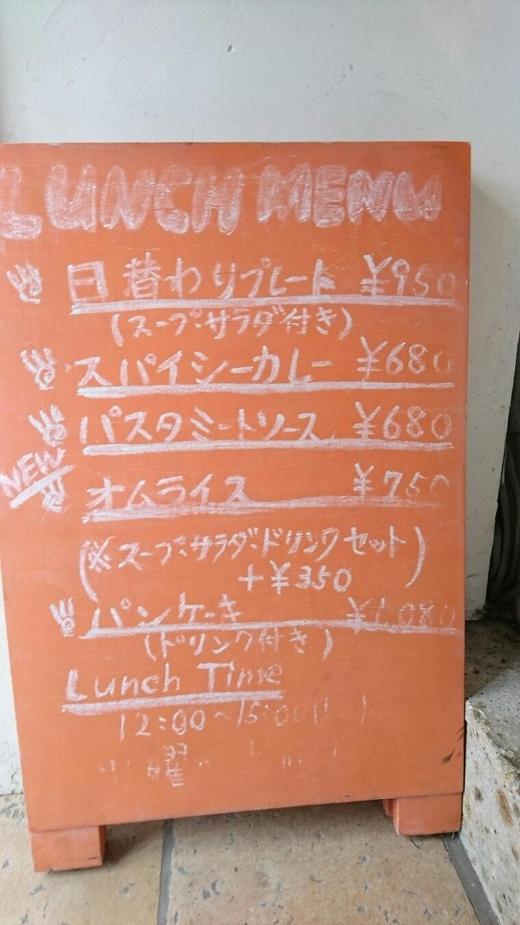 LUNCH MENU
日替わりプレート ¥950
(スープ・サラダ付き)
スパイシーカレー ¥680
パスタミートソース ¥680
NEW
オムライス ¥750
(※スープ・サラダ・ドリンクセット)
+¥350
パンケーキ ¥1,080
(ドリンク付き)
Lunch Time
12:00~15:00